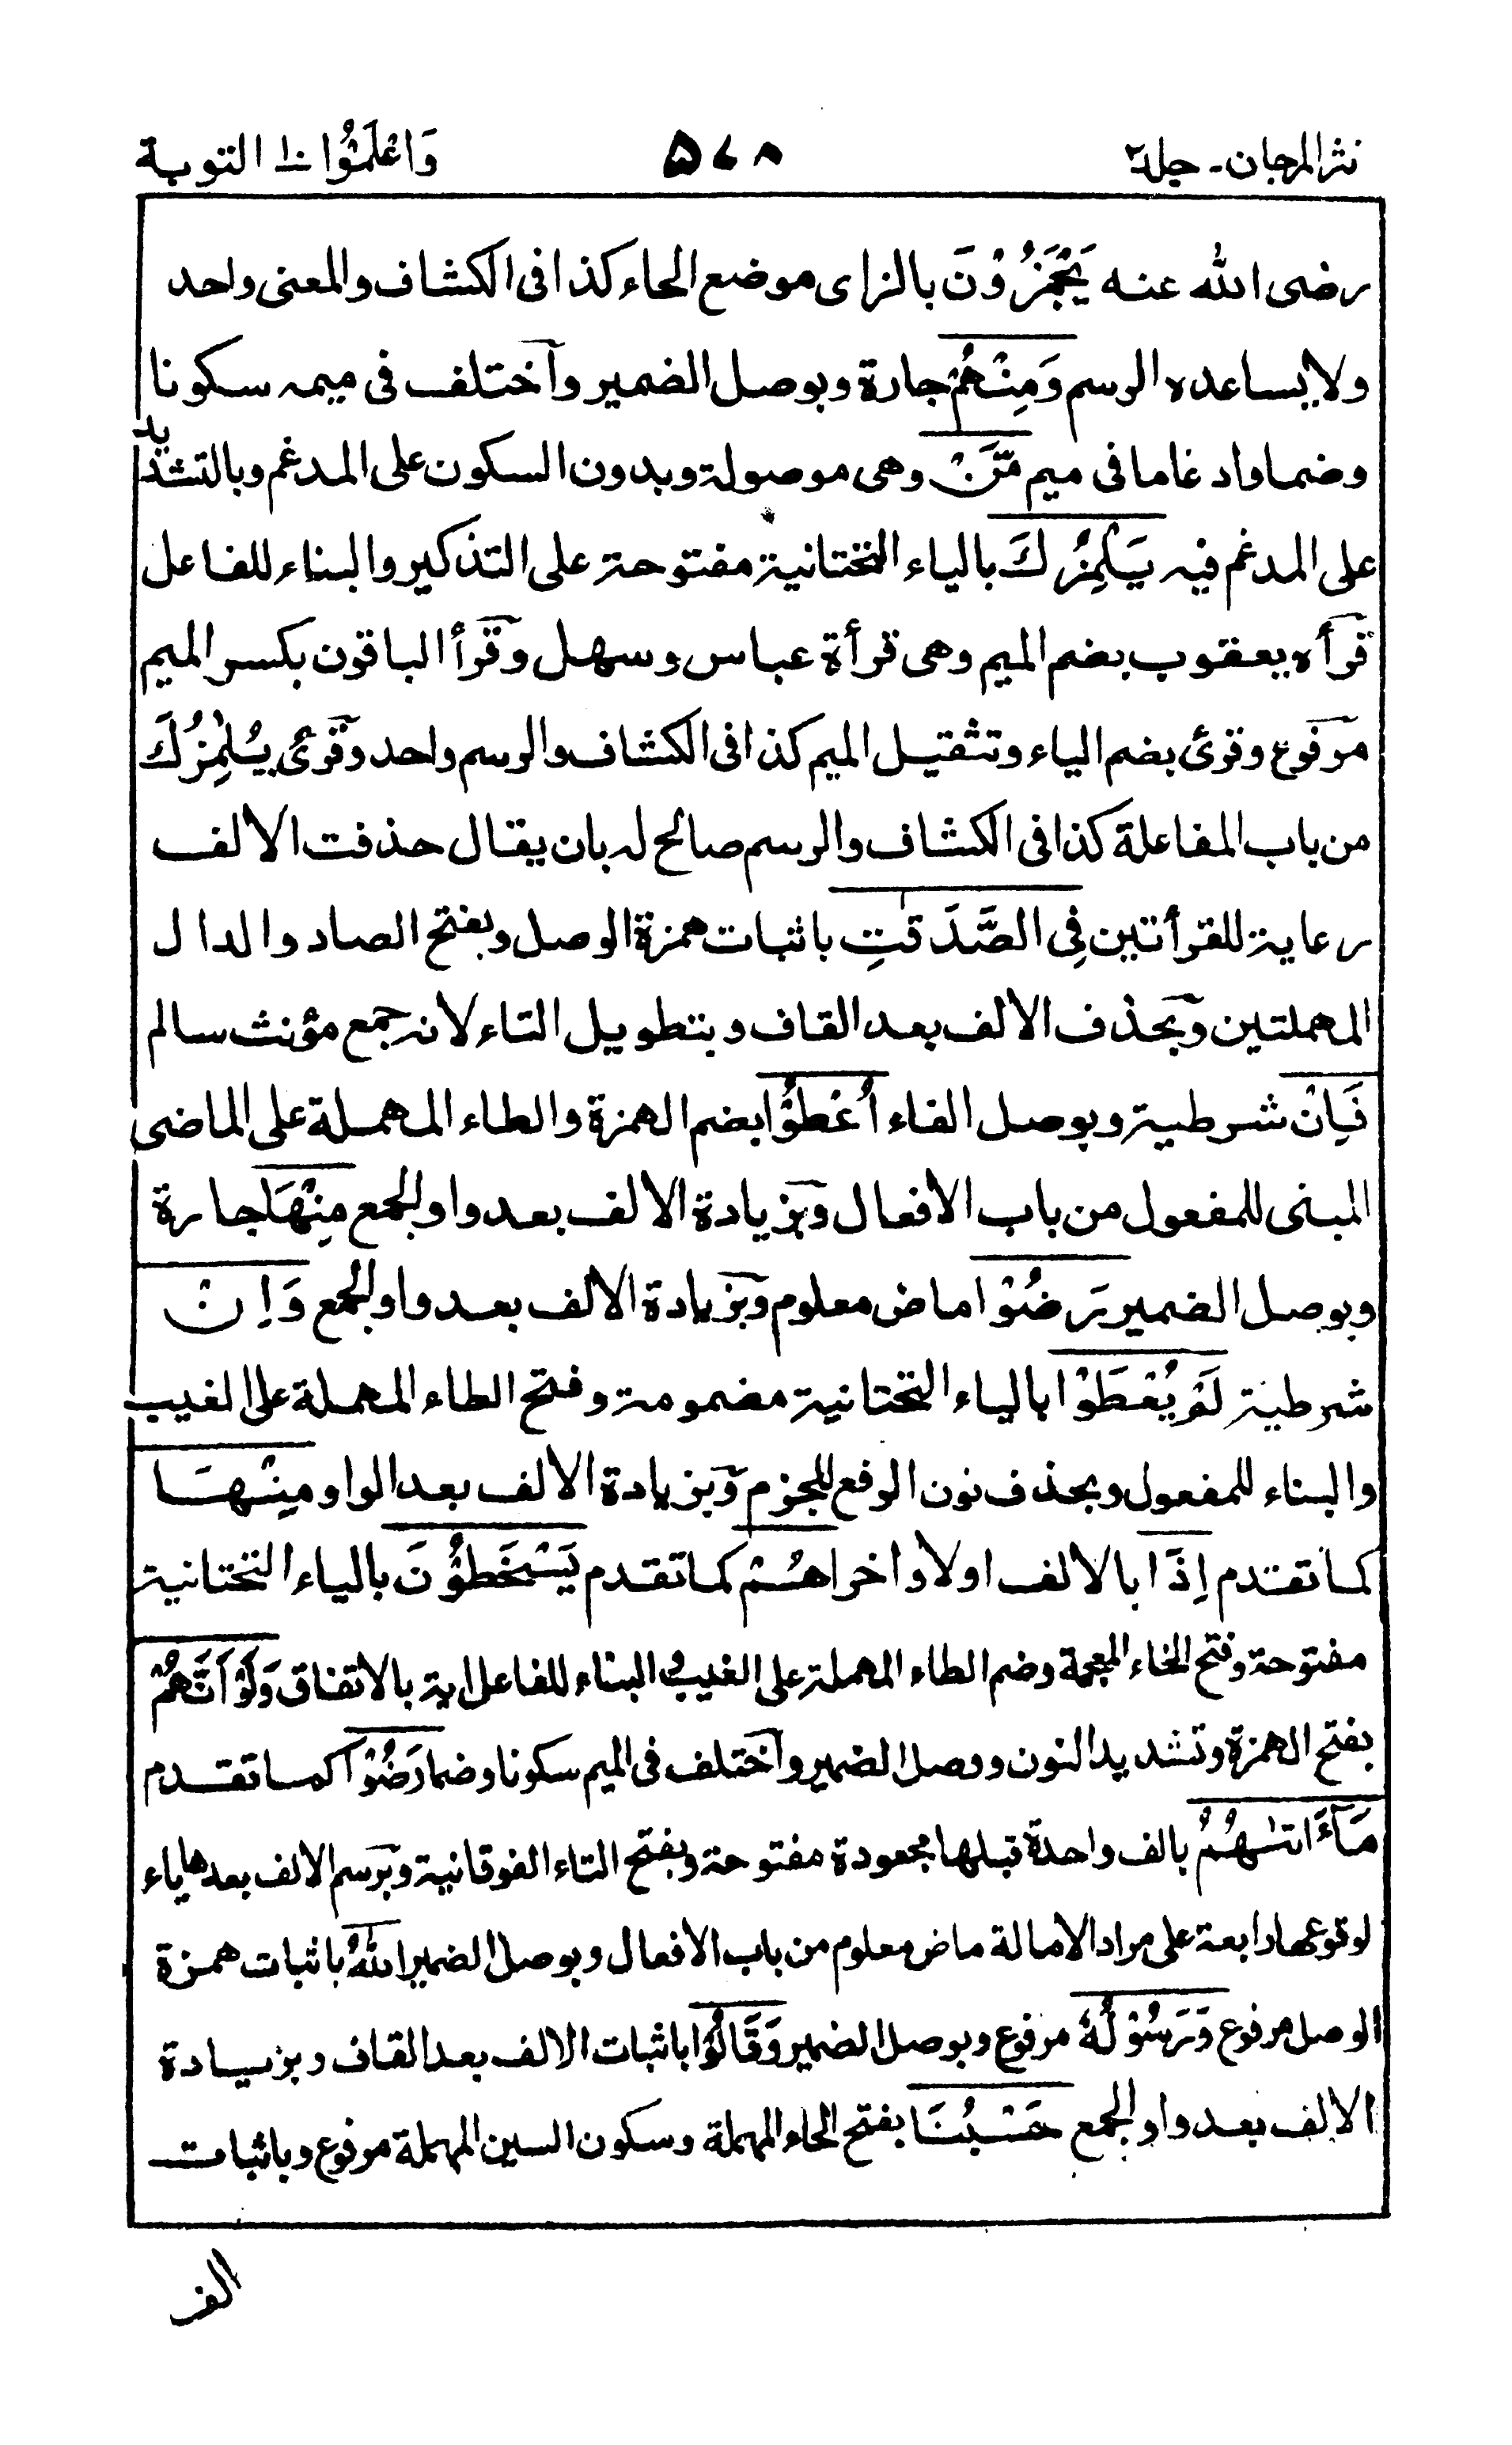 نثر المرجان - جلد ٢ ۵۷۸ وَاعْلَمُوْا ١٠ التوبة
رضى الله عنه يَجْمَزُوْنَ بالزاى موضع الحاء كذا فى الكشاف والمعنى واحد
ولا يساعده الرسم وَمِنْهُمْ جارة وبوصل الضمير وآختلف فى ميمه سكونا
وضما وادغاما فى ميم مَّنْ وهى موصولة وبدون السكون على المدغم وبالتشديد
على المدغم فيه يَلْمِزُكَ بالياء التحتانية مفتوحة على التذكير والبناء للفاعل
قرأه يعقوب بضم الميم وهى قرأة عباس وسهل وقرأ الباقون بكسر الميم
مرفوع وقرئ بضم الياء وتثقيل الميم كذا فى الكشاف والرسم واحد وقرئ يُلٰمِزُكَ
من باب المفاعلة كذا فى الكشاف والرسم صالح له بان يقال حذفت الالف
رعاية للقرأتين فِى الصَّدَقٰتِ باثبات همزة الوصل وبفتح الصاد والدال
المهملتين وبحذف الالف بعد القاف وبتطويل التاء لانه جمع مؤنث سالم
فَاِنْ شرطية وبوصل الفاء اُعْطُوْا بضم الهمزة والطاء المهملة على الماضى
المبنى للمفعول من باب الافعال وبزيادة الالف بعد واو الجمع مِنْهَا جارة
وبوصل الضمير رَضُوْا ماض معلوم وبزيادة الالف بعد واو الجمع وَاِنْ
شرطية لَمْ يُعْطَوْا بالياء التحتانية مضمومة وفتح الطاء المهملة على الغيب
والبناء للمفعول وبحذف نون الرفع للجزم وبزيادة الالف بعد الواو مِنْهَا
كما تقدم اِذَا بالالف اولا واخرا هُمْ كما تقدم يَسْخَطُوْنَ بالياء التحتانية
مفتوحة وفتح الخاء المعجمة وضم الطاء المهملة على الغيب والبناء للفاعل اية بالاتفاق وَلَوْ اَنَّهُمْ
بفتح الهمزة وتشديد النون ووصل الضمير وآختلف فى الميم سكونا وضما رَضُوْا كما تقدم
مَآءَاتٰىهُمُ بالف واحدة قبلها مجعودة مفتوحة وبفتح التاء الفوقانية وبرسم الالف بعدها ياء
لوقوعها رابعة على مراد الامالة ماض معلوم من باب الافعال وبوصل الضمير اللّٰهُ باثبات همزة
الوصل مرفوع وَرَسُوْلُهٗ مرفوع وبوصل الضمير وَقَالُوْا باثبات الالف بعد القاف وبزيادة
الالف بعد واو الجمع حَسْبُنَا بفتح الحاء المهملة وسكون السين المهملة مرفوع وباثبات
الف